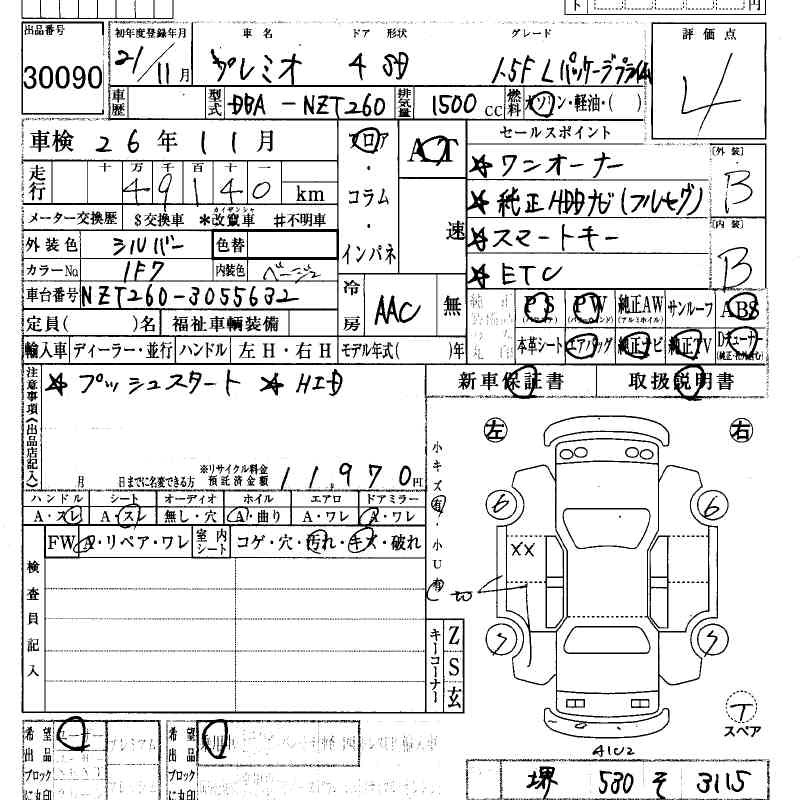 出品番号
30090
初年度登録年月
21/11月
車名
プレミオ
ドア 形状
4 SD
グレード
1.5F Lパッケージプライム
評価点
4
車歴
型式
DBA-NZT260
排気量
1500cc
燃料
ガソリン・軽油・( )
車検 26年11月
走行
十 万 千 百 十 一
49140 km
メーター交換歴 $交換車 *改竄車 #不明車
カイザンシャ
外装色 シルバー 色替
カラーNo. 1F7 内装色 ベージュ
車台番号 NZT260-3055632
定員( )名 福祉車輌装備
輸入車 ディーラー・並行 ハンドル 左H・右H モデル年式( )年
フロア・コラム・インパネ
AT
速
冷房 AAC 無
セールスポイント
☆ワンオーナー
☆純正HDDナビ(フルセグ)
☆スマートキー
☆ETC
[外装]
B
[内装]
B
PS PW 純正AW サンルーフ ABS
(アルミホイル)
本革シート エアバッグ 純正ナビ 純正TV
新車保証書 取扱説明書
注意事項(出品店記入)
☆プッシュスタート ☆HID
月 日までに名変できる方
※リサイクル料金
預託済金額 11,970円
ハンドル シート オーディオ ホイル エアロ ドアミラー
A・スレ A・スレ 無し・穴 A・曲り A・ワレ A・ワレ
FW A・リペア・ワレ 室内シート コゲ・穴・汚れ・キズ・破れ
検査員記入
小キズ有・小U有
キーコーナー
Z
S
玄
左 右
6 6
XX
7 7
T
スペア
A1U2
希望出品ブロックに丸印
ユーザー
プレミアム
希望出品ブロックに丸印
堺 530 そ 3115